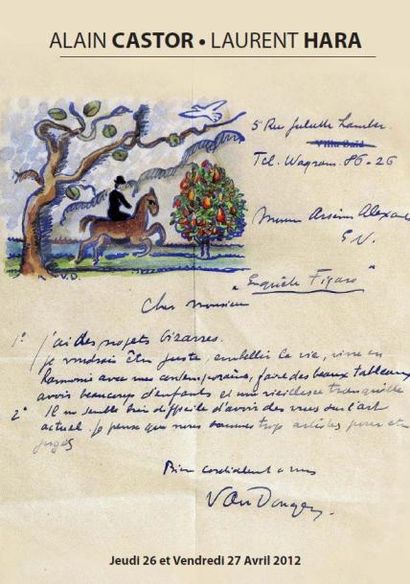 ALAIN CASTOR • LAURENT HARA
5 Rue Juliette Lamber
Villa Saïd
Tel. Wagram. 86-26
Monsieur Arsène Alexand
E.V.
V.D.
"Enquête Figaro"
Cher Monsieur
1° J'ai des projets bizarres.
Je voudrais être juste, embellir la vie, vivre en
harmonie avec mes contemporains, faire des beaux tableaux
avoir beaucoup d'enfants et une vieillesse tranquille
2° Il me semble bien difficile d'avoir des vues sur l'art
actuel. Je pense que nous sommes trop artistes pour être
juges
Bien cordialement à vous
Van Dongen
Jeudi 26 et Vendredi 27 Avril 2012